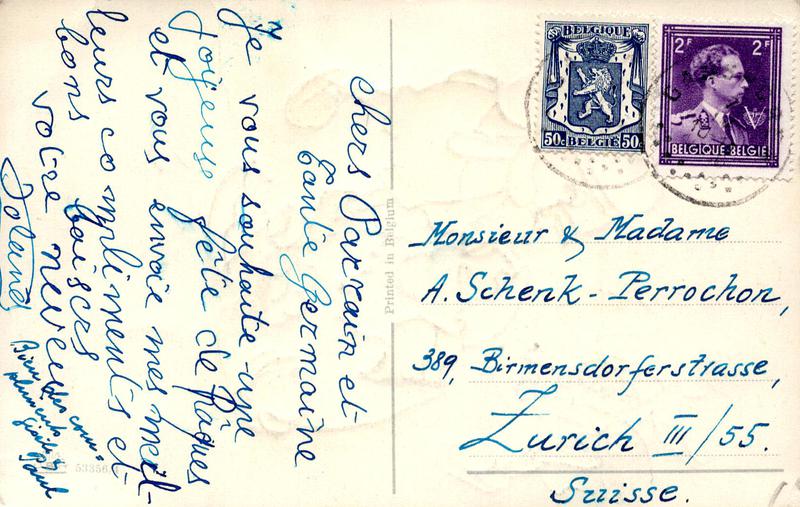 chers Parrain et
tante Germaine
je vous souhaite une
joyeuse fête de Pâques
et vous envoie mes meil-
leurs compliments et
bons baisers
votre neveu
Roland
Bien des com-
pliments
Paul
Printed in Belgium
53356
BELGIQUE
50c BELGIË 50c
2F 2F
BELGIQUE-BELGIË
Monsieur & Madame
A. Schenk-Perrochon,
389, Birmensdorferstrasse,
Zurich III/55.
Suisse.